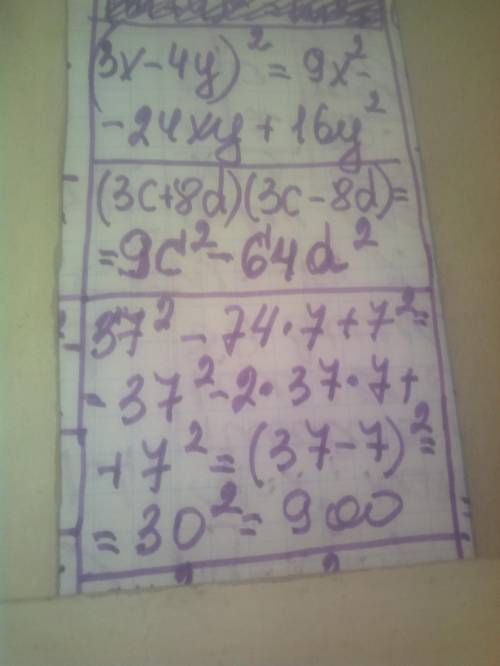 (3x-4y)² = 9x²-
-24xy+16y²
(3c+8d)(3c-8d)=
=9c²-64d²
37²-74·7+7²=
-37²-2·37·7+
+7²=(37-7)²=
=30²=900